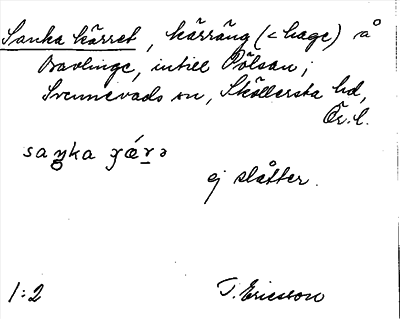 Sanka kärret, kärräng (< hage) å
Bavlinge, intill Pölsan;
Svennevads sn, Sköllersta hd,
Ör. l.
saŋka
ej slåtter.
1:2
T. Ericsson